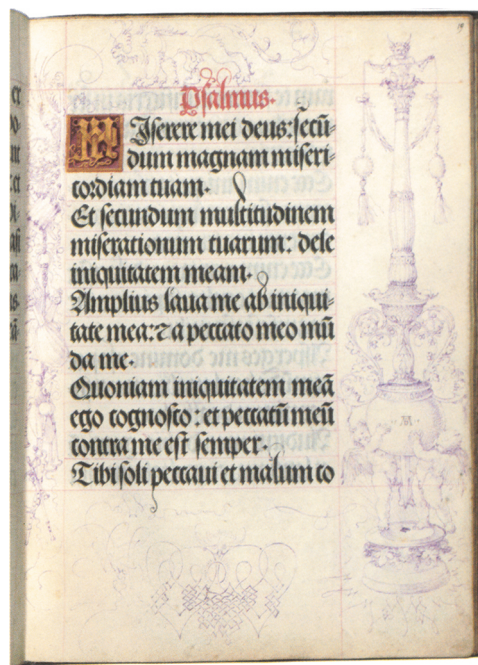 Psalmus.
MJserere mei deus: secū-
dum magnam miseri-
cordiam tuam.
Et secundum multitudinem
miserationum tuarum: dele
iniquitatem meam.
Amplius laua me ab iniqui-
tate mea: ⁊ a peccato meo mū
da me.
Quoniam iniquitatem meā
ego cognosco: et peccatū meū
contra me est semper.
Tibi soli peccaui et malum co